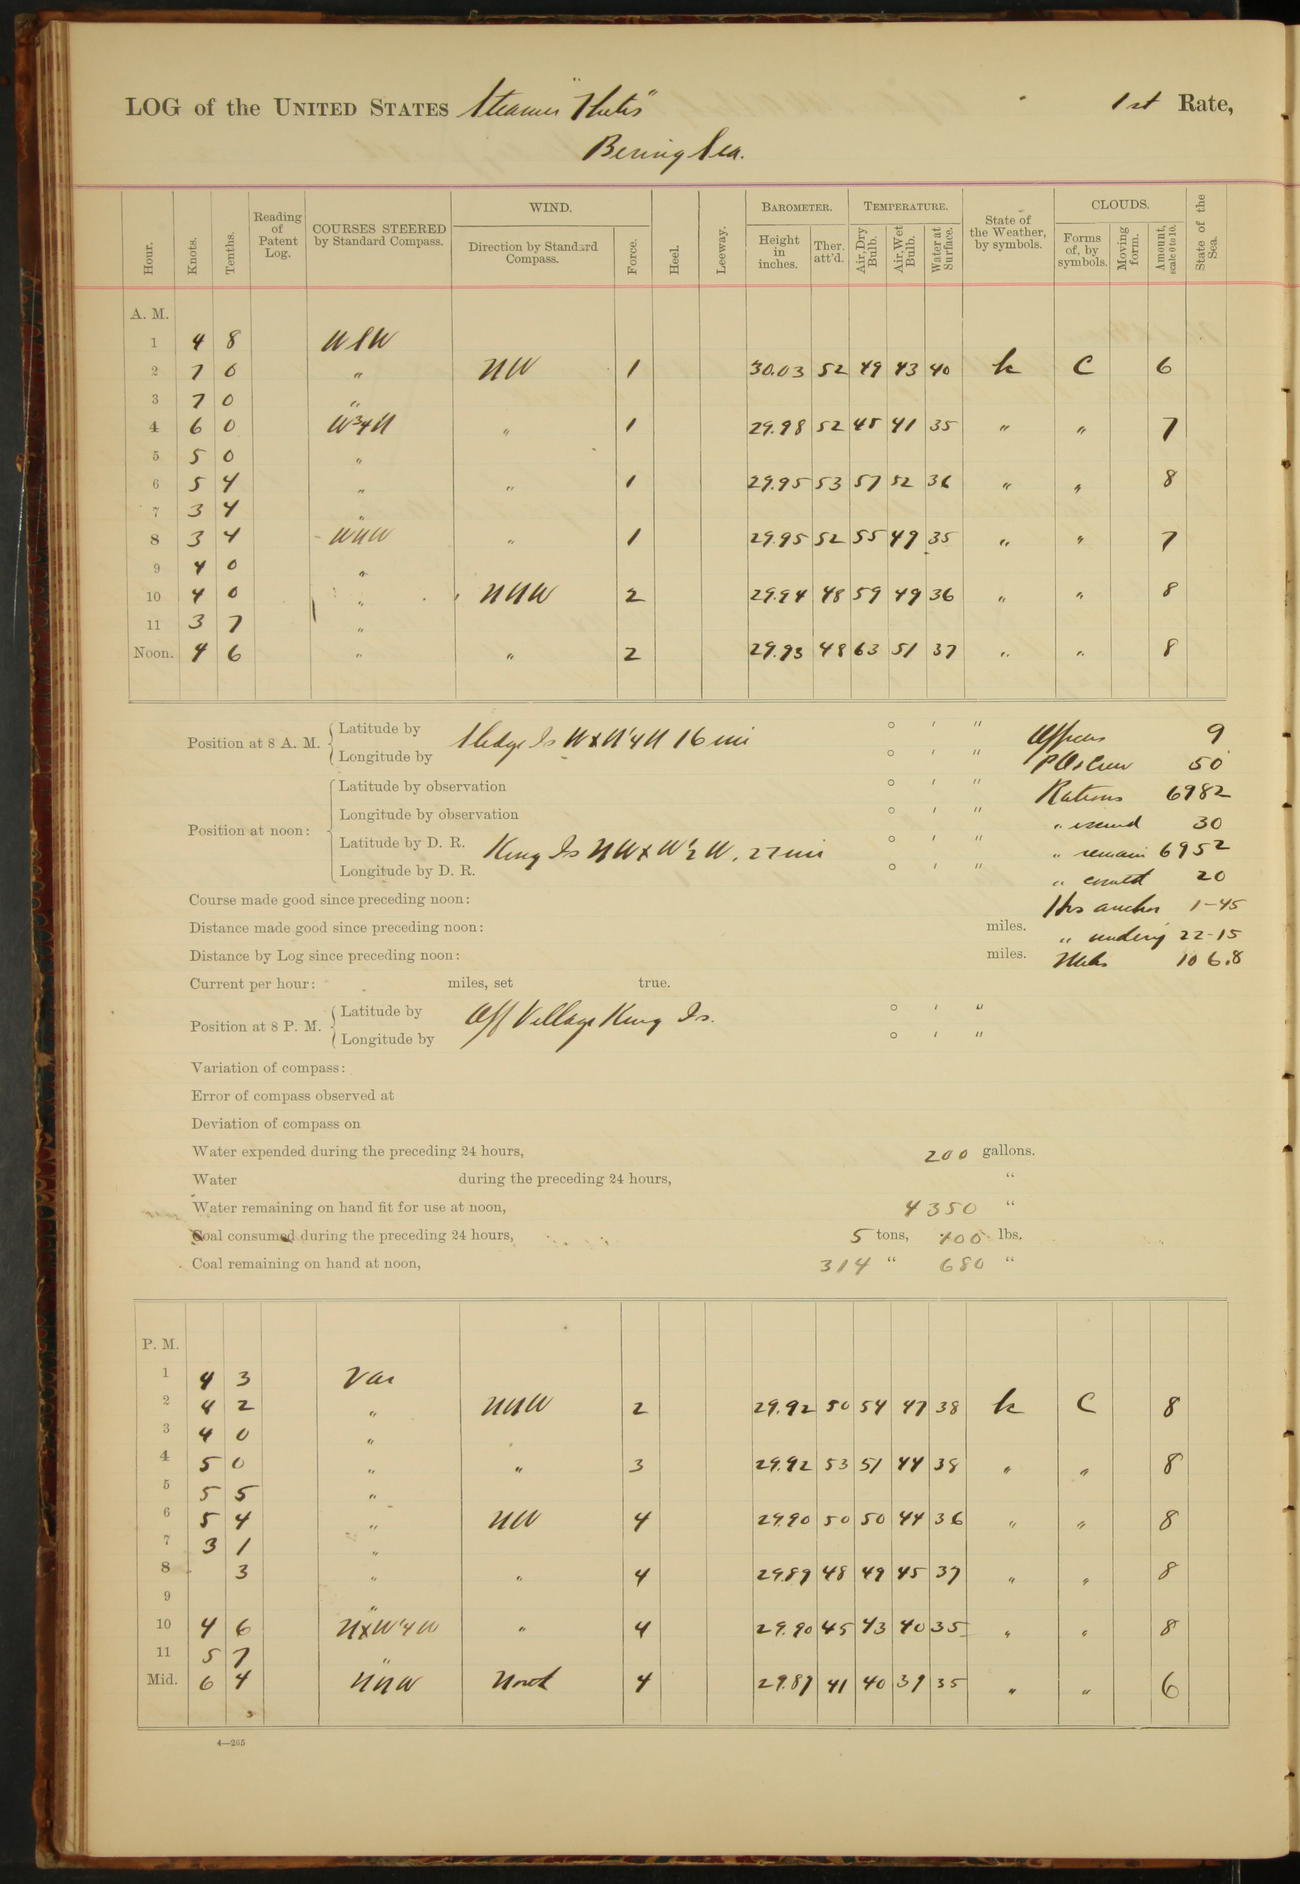 LOG of the UNITED STATES Steamer "Thetis" 1st Rate,
Bering Sea.
Hour. Knots. Tenths. Reading of Patent Log. COURSES STEERED by Standard Compass. WIND. Direction by Standard Compass. Force. Heel. Leeway. BAROMETER. Height in inches. Ther. att'd. TEMPERATURE. Air, Dry Bulb. Air, Wet Bulb. Water at Surface. State of the Weather, by symbols. CLOUDS. Forms of, by symbols. Moving form. Amount, scale 0 to 10. State of the Sea.
A. M.
1 4 8 WSW
2 7 0 " NW 1 30.03 52 49 43 40 bc C 6
3 7 0 "
4 6 0 W¾N " 1 29.98 52 45 41 35 " " 7
5 5 0 "
6 5 4 " " 1 29.95 53 57 52 36 " " 8
7 3 4 "
8 3 4 WNW " 1 29.95 52 55 49 35 " " 7
9 4 0 "
10 4 0 " NNW 2 29.94 48 59 49 36 " " 8
11 3 7 "
Noon. 4 6 " " 2 29.93 48 63 51 37 " " 8
Position at 8 A. M. Latitude by Sledge Is WxN¼N 16 mi ° ′ ″ Officers 9
Longitude by ° ′ ″ POs Crew 50
Position at noon: Latitude by observation ° ′ ″ Rations 6982
Longitude by observation ° ′ ″ " issued 30
Latitude by D. R. King Is NWxW½W. 27 mi ° ′ ″ " remain 6952
Longitude by D. R. ° ′ ″ " comtd 20
Course made good since preceding noon: Hrs anchor 1-45
Distance made good since preceding noon: miles. " underwy 22-15
Distance by Log since preceding noon: miles. Miles 106.8
Current per hour: miles, set true.
Position at 8 P. M. Latitude by Off Village King Is. ° ′ ″
Longitude by ° ′ ″
Variation of compass:
Error of compass observed at
Deviation of compass on
Water expended during the preceding 24 hours, 200 gallons.
Water during the preceding 24 hours, "
Water remaining on hand fit for use at noon, 4350 "
Coal consumed during the preceding 24 hours, 5 tons, 400 lbs.
Coal remaining on hand at noon, 314 " 680 "
P. M.
1 4 3 Var
2 4 2 " NNW 2 29.92 50 54 47 38 bc C 8
3 4 0 "
4 5 0 " " 3 29.92 53 51 44 38 " " 8
5 5 5 "
6 5 4 " NW 4 29.90 50 50 44 36 " " 8
7 3 1 "
8 3 " " 4 29.89 48 49 45 37 " " 8
9 "
10 4 6 NxW¼W " 4 29.90 45 43 40 35 " " 8
11 5 7 "
Mid. 6 4 NNW North 4 29.87 41 40 39 35 " " 6
4—265